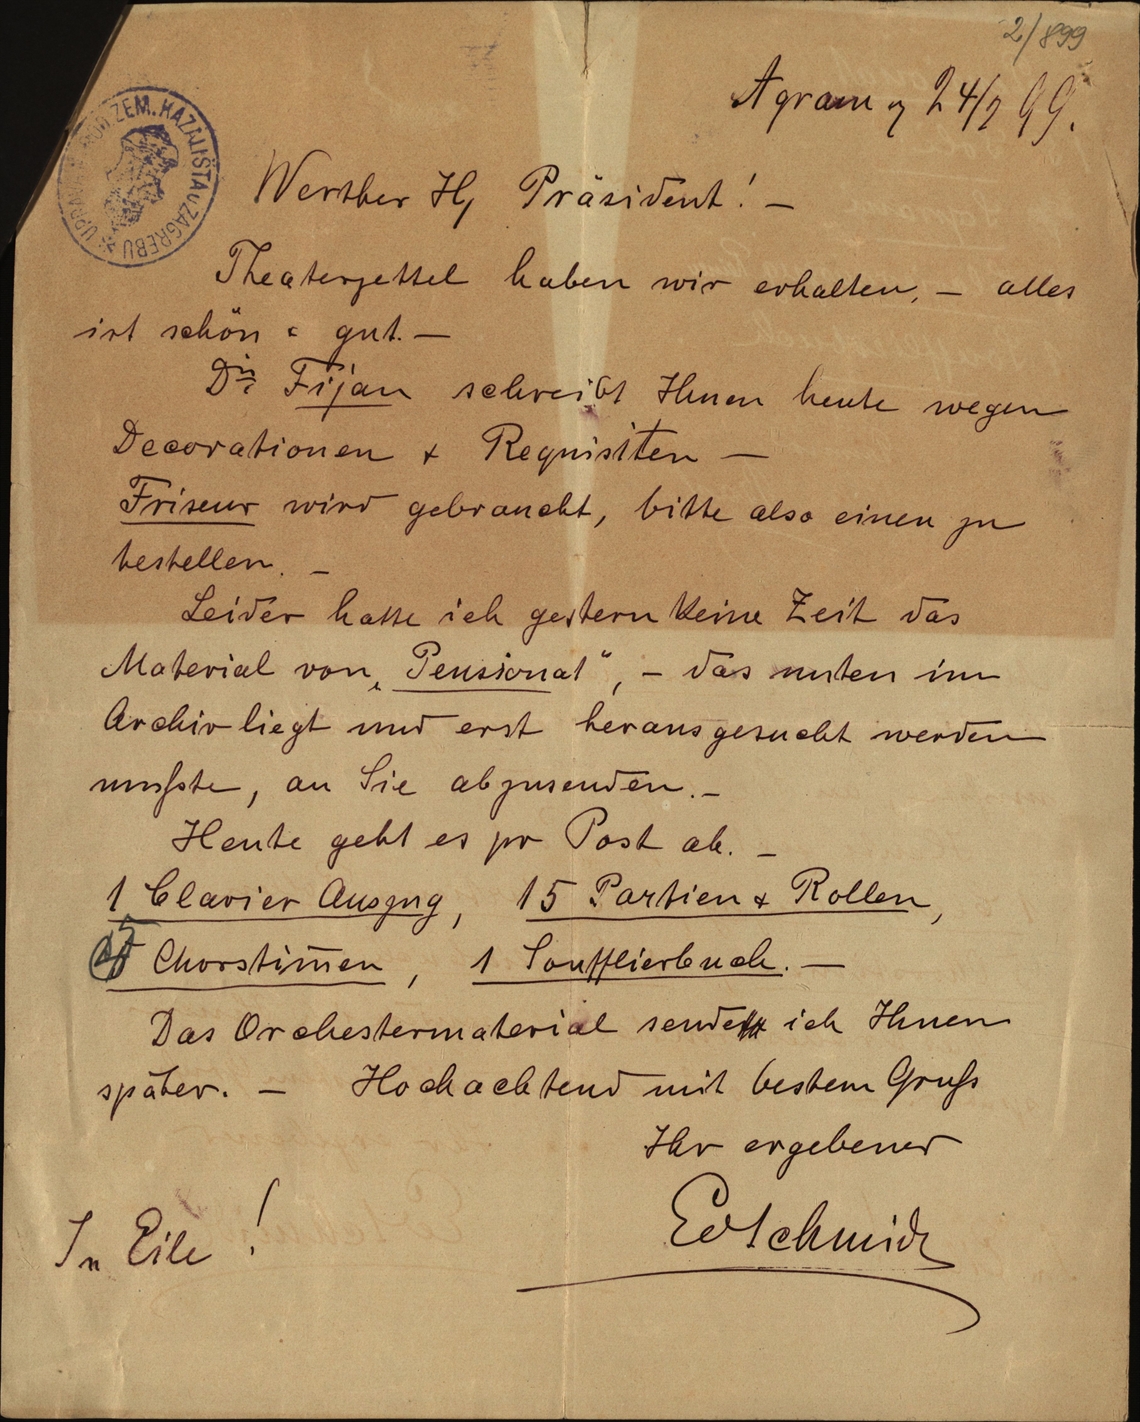 2/899
Agram 24/7 99.
UPRAVA ZEM. KAZALIŠTA U ZAGREBU
Werther H, Präsident! —
Theaterzettel haben wir erhalten, — alles
ist schön & gut. —
Dir Fijan schreibt Ihnen heute wegen
Decorationen & Requisiten —
Friseur wird gebraucht, bitte also einen zu
bestellen. —
Leider hatte ich gestern keine Zeit das
Material von „Pensionat“, — das unten im
Archiv liegt und erst herausgesucht werden
mußte, an Sie abzusenden. —
Heute geht es pr Post ab. —
1 Clavier Auszug, 15 Partien & Rollen,
Chorstimmen, 1 Soufflierbuch. —
Das Orchestermaterial sende ich Ihnen
später. — Hochachtend mit bestem Gruß
Ihr ergebener
In Eile! EdSchmidt